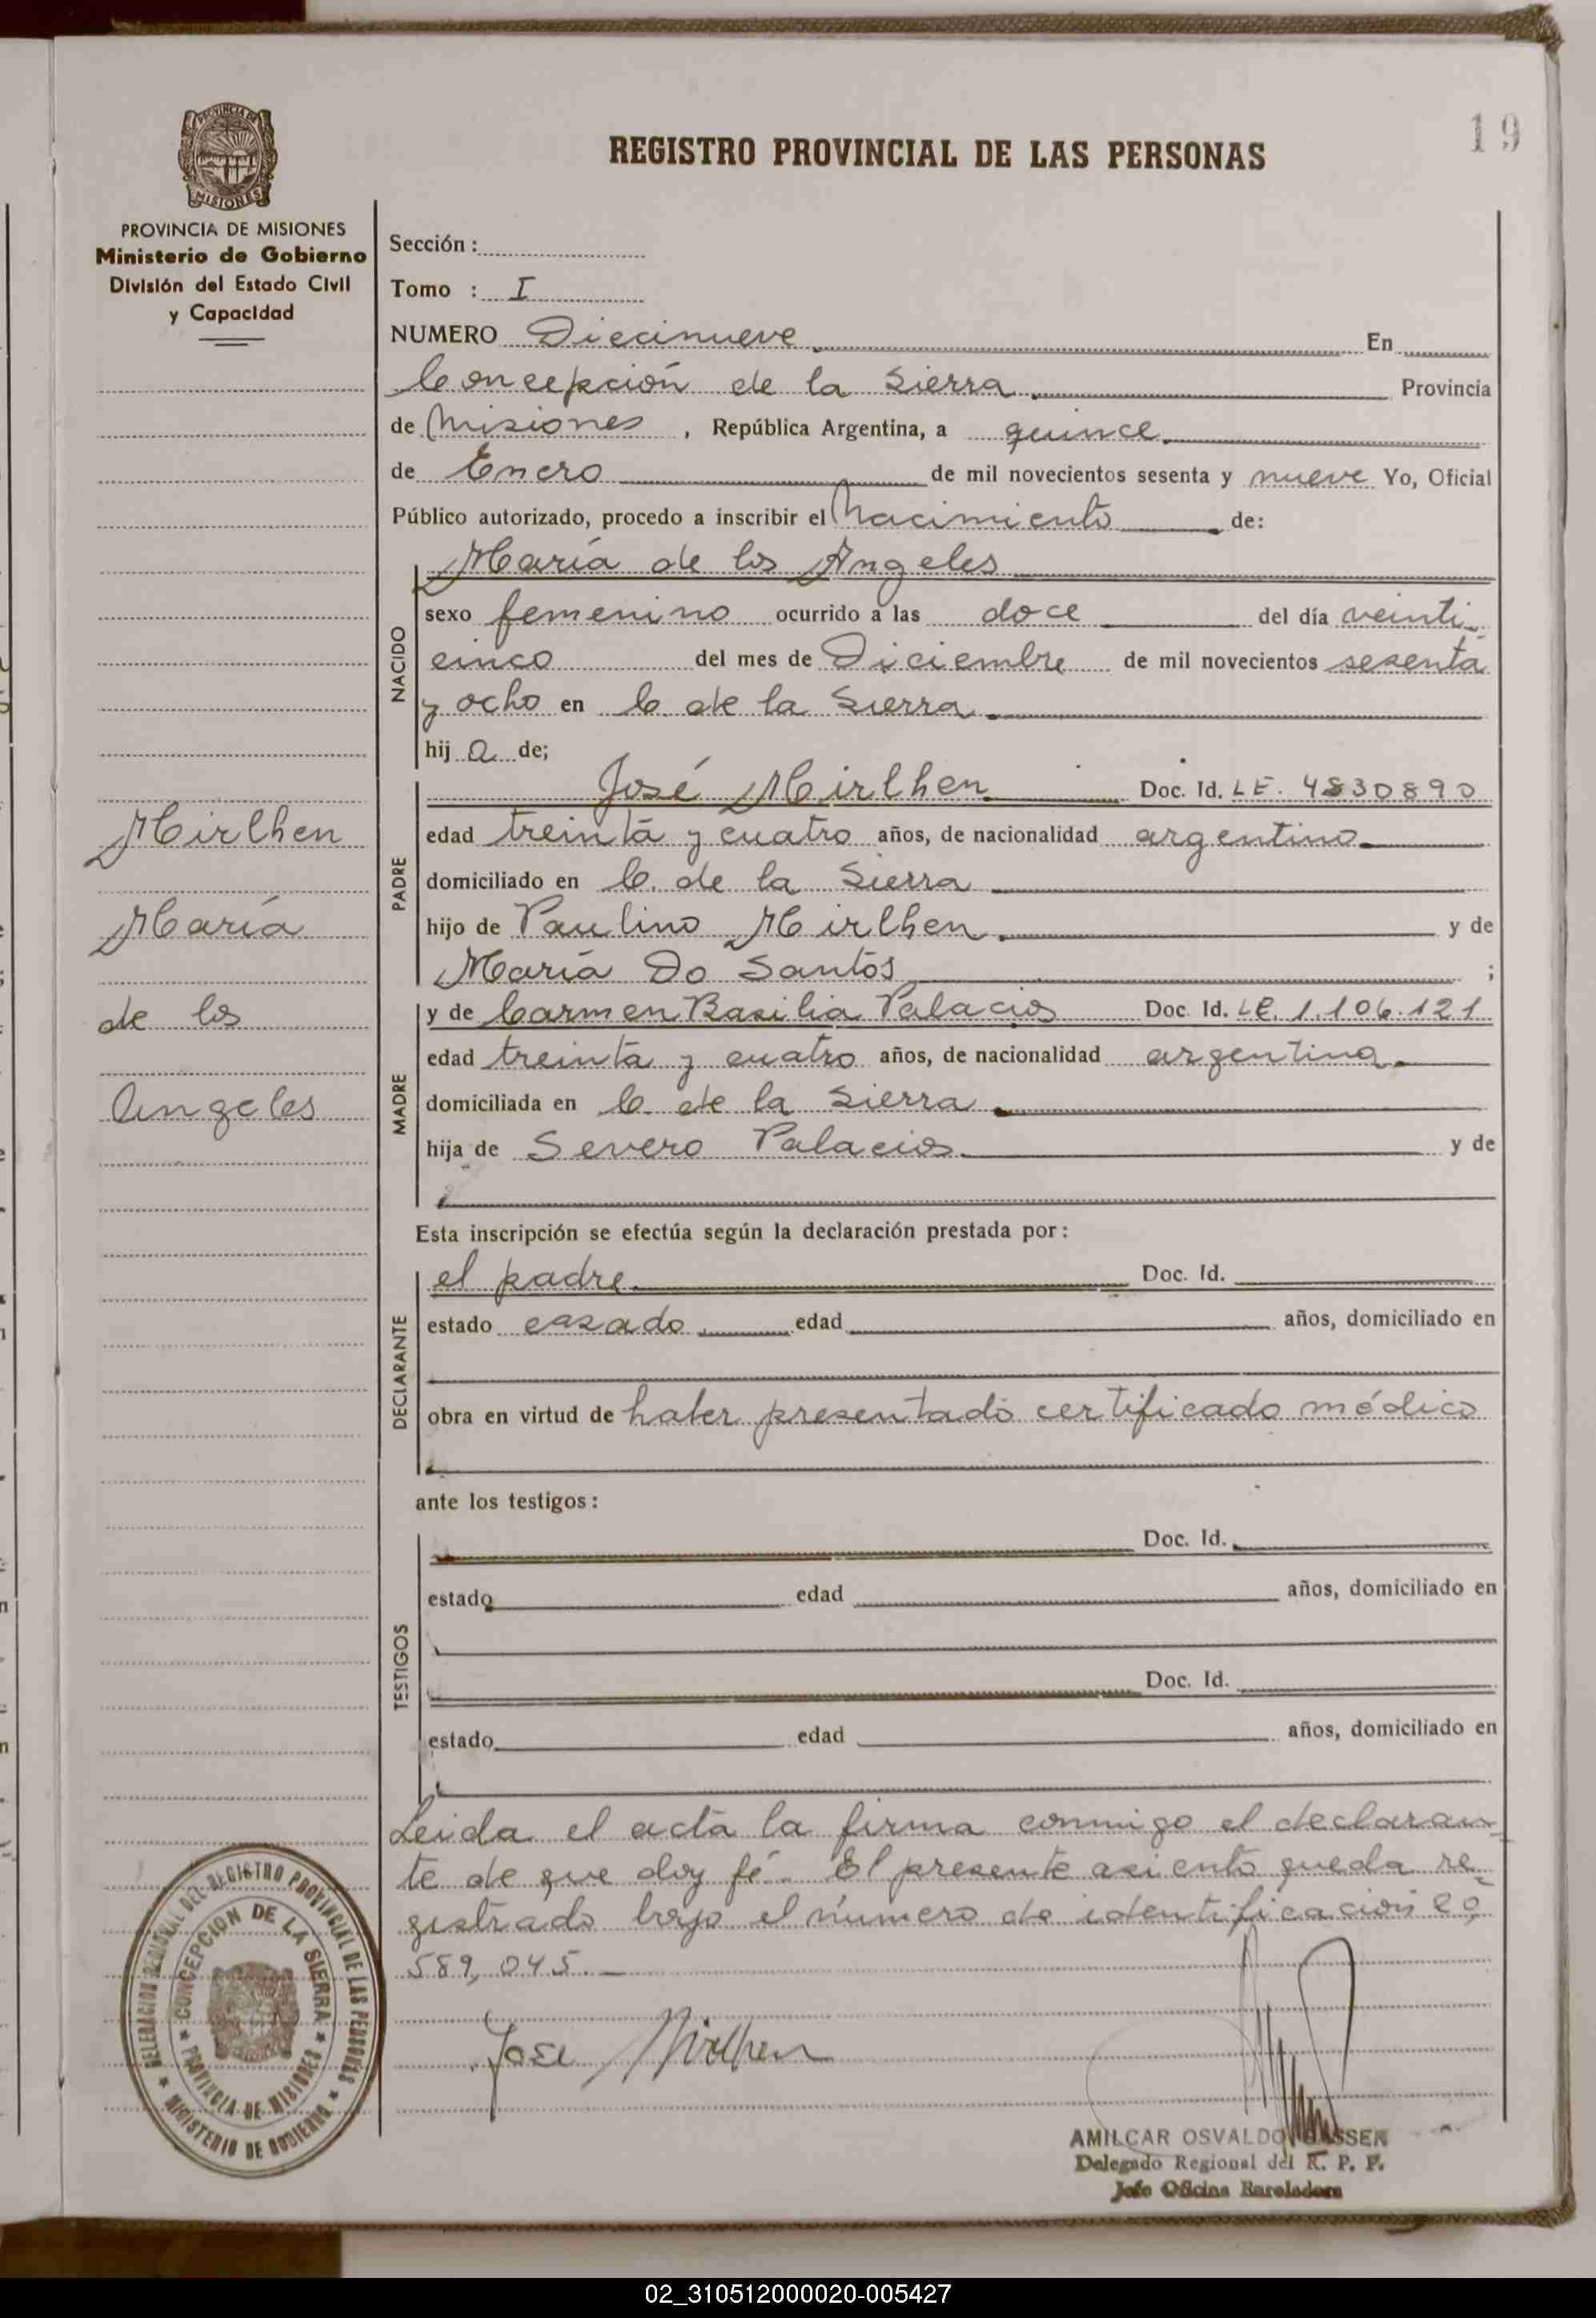 19
REGISTRO PROVINCIAL DE LAS PERSONAS
PROVINCIA DE MISIONES
Ministerio de Gobierno
División del Estado Civil
y Capacidad
Sección :
Tomo : I
NUMERO Diecinueve En
Concepción de la Sierra Provincia
de Misiones , República Argentina, a quince
de Enero de mil novecientos sesenta y nueve Yo, Oficial
Público autorizado, procedo a inscribir el Nacimiento de:
María de los Angeles
NACIDO
sexo femenino ocurrido a las doce del día veinti-
cinco del mes de Diciembre de mil novecientos sesenta
y ocho en C. de la Sierra
hij a de;
José Mirlhen Doc. Id. LE. 4830890
PADRE
edad treinta y cuatro años, de nacionalidad argentino
domiciliado en C. de la Sierra
hijo de Paulino Mirlhen y de
María Do Santos ;
y de Carmen Basilia Palacios Doc. Id. LE. 1.106.121
MADRE
edad treinta y cuatro años, de nacionalidad argentina
domiciliada en C. de la Sierra
hija de Severo Palacios y de
Mirlhen
María
de los
Angeles
Esta inscripción se efectúa según la declaración prestada por :
el padre Doc. Id.
DECLARANTE
estado casado edad años, domiciliado en
obra en virtud de haber presentado certificado médico
ante los testigos :
Doc. Id.
TESTIGOS
estado edad años, domiciliado en
Doc. Id.
estado edad años, domiciliado en
Leida el acta la firma conmigo el declaran-
te de que doy fé. El presente asiento queda re-
gistrado bajo el número de identificación
589,045.
Jose Mirlhen
DELEGACION REGIONAL DEL REGISTRO PROVINCIAL DE LAS PERSONAS
MINISTERIO DE GOBIERNO
CONCEPCION DE LA SIERRA
PROVINCIA DE MISIONES
AMILCAR OSVALDO
Delegado Regional del R. P. P.
Jefe Oficina
02_310512000020-005427